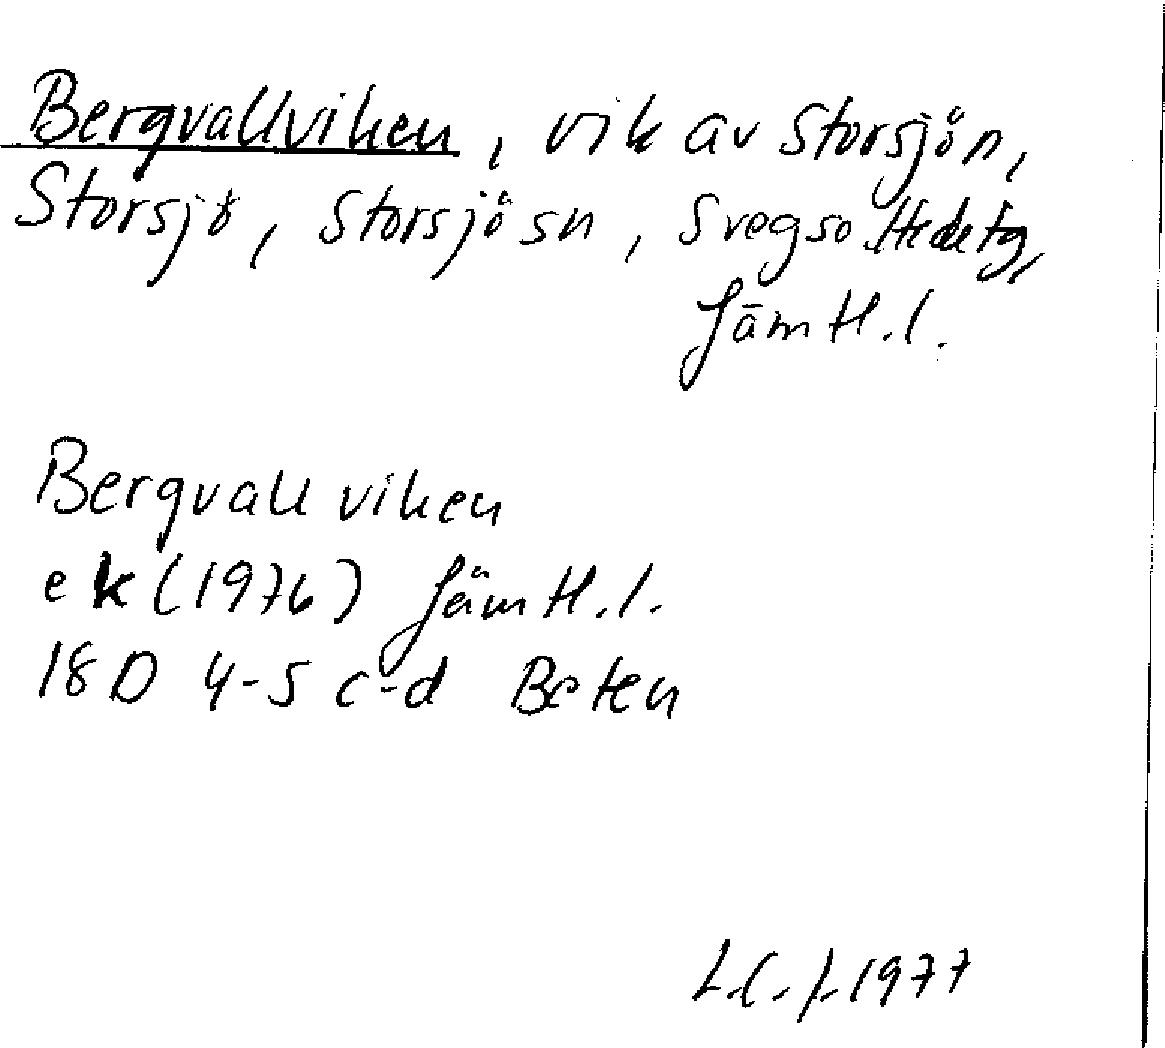 Bergvallviken, vik av Storsjön,
Storsjö, Storsjö sn, Svegs o. Hede tg,
Jämtl. l.
Bergvallviken
ek (1976) Jämtl. l.
18D 4-5 c-d Beten
1977